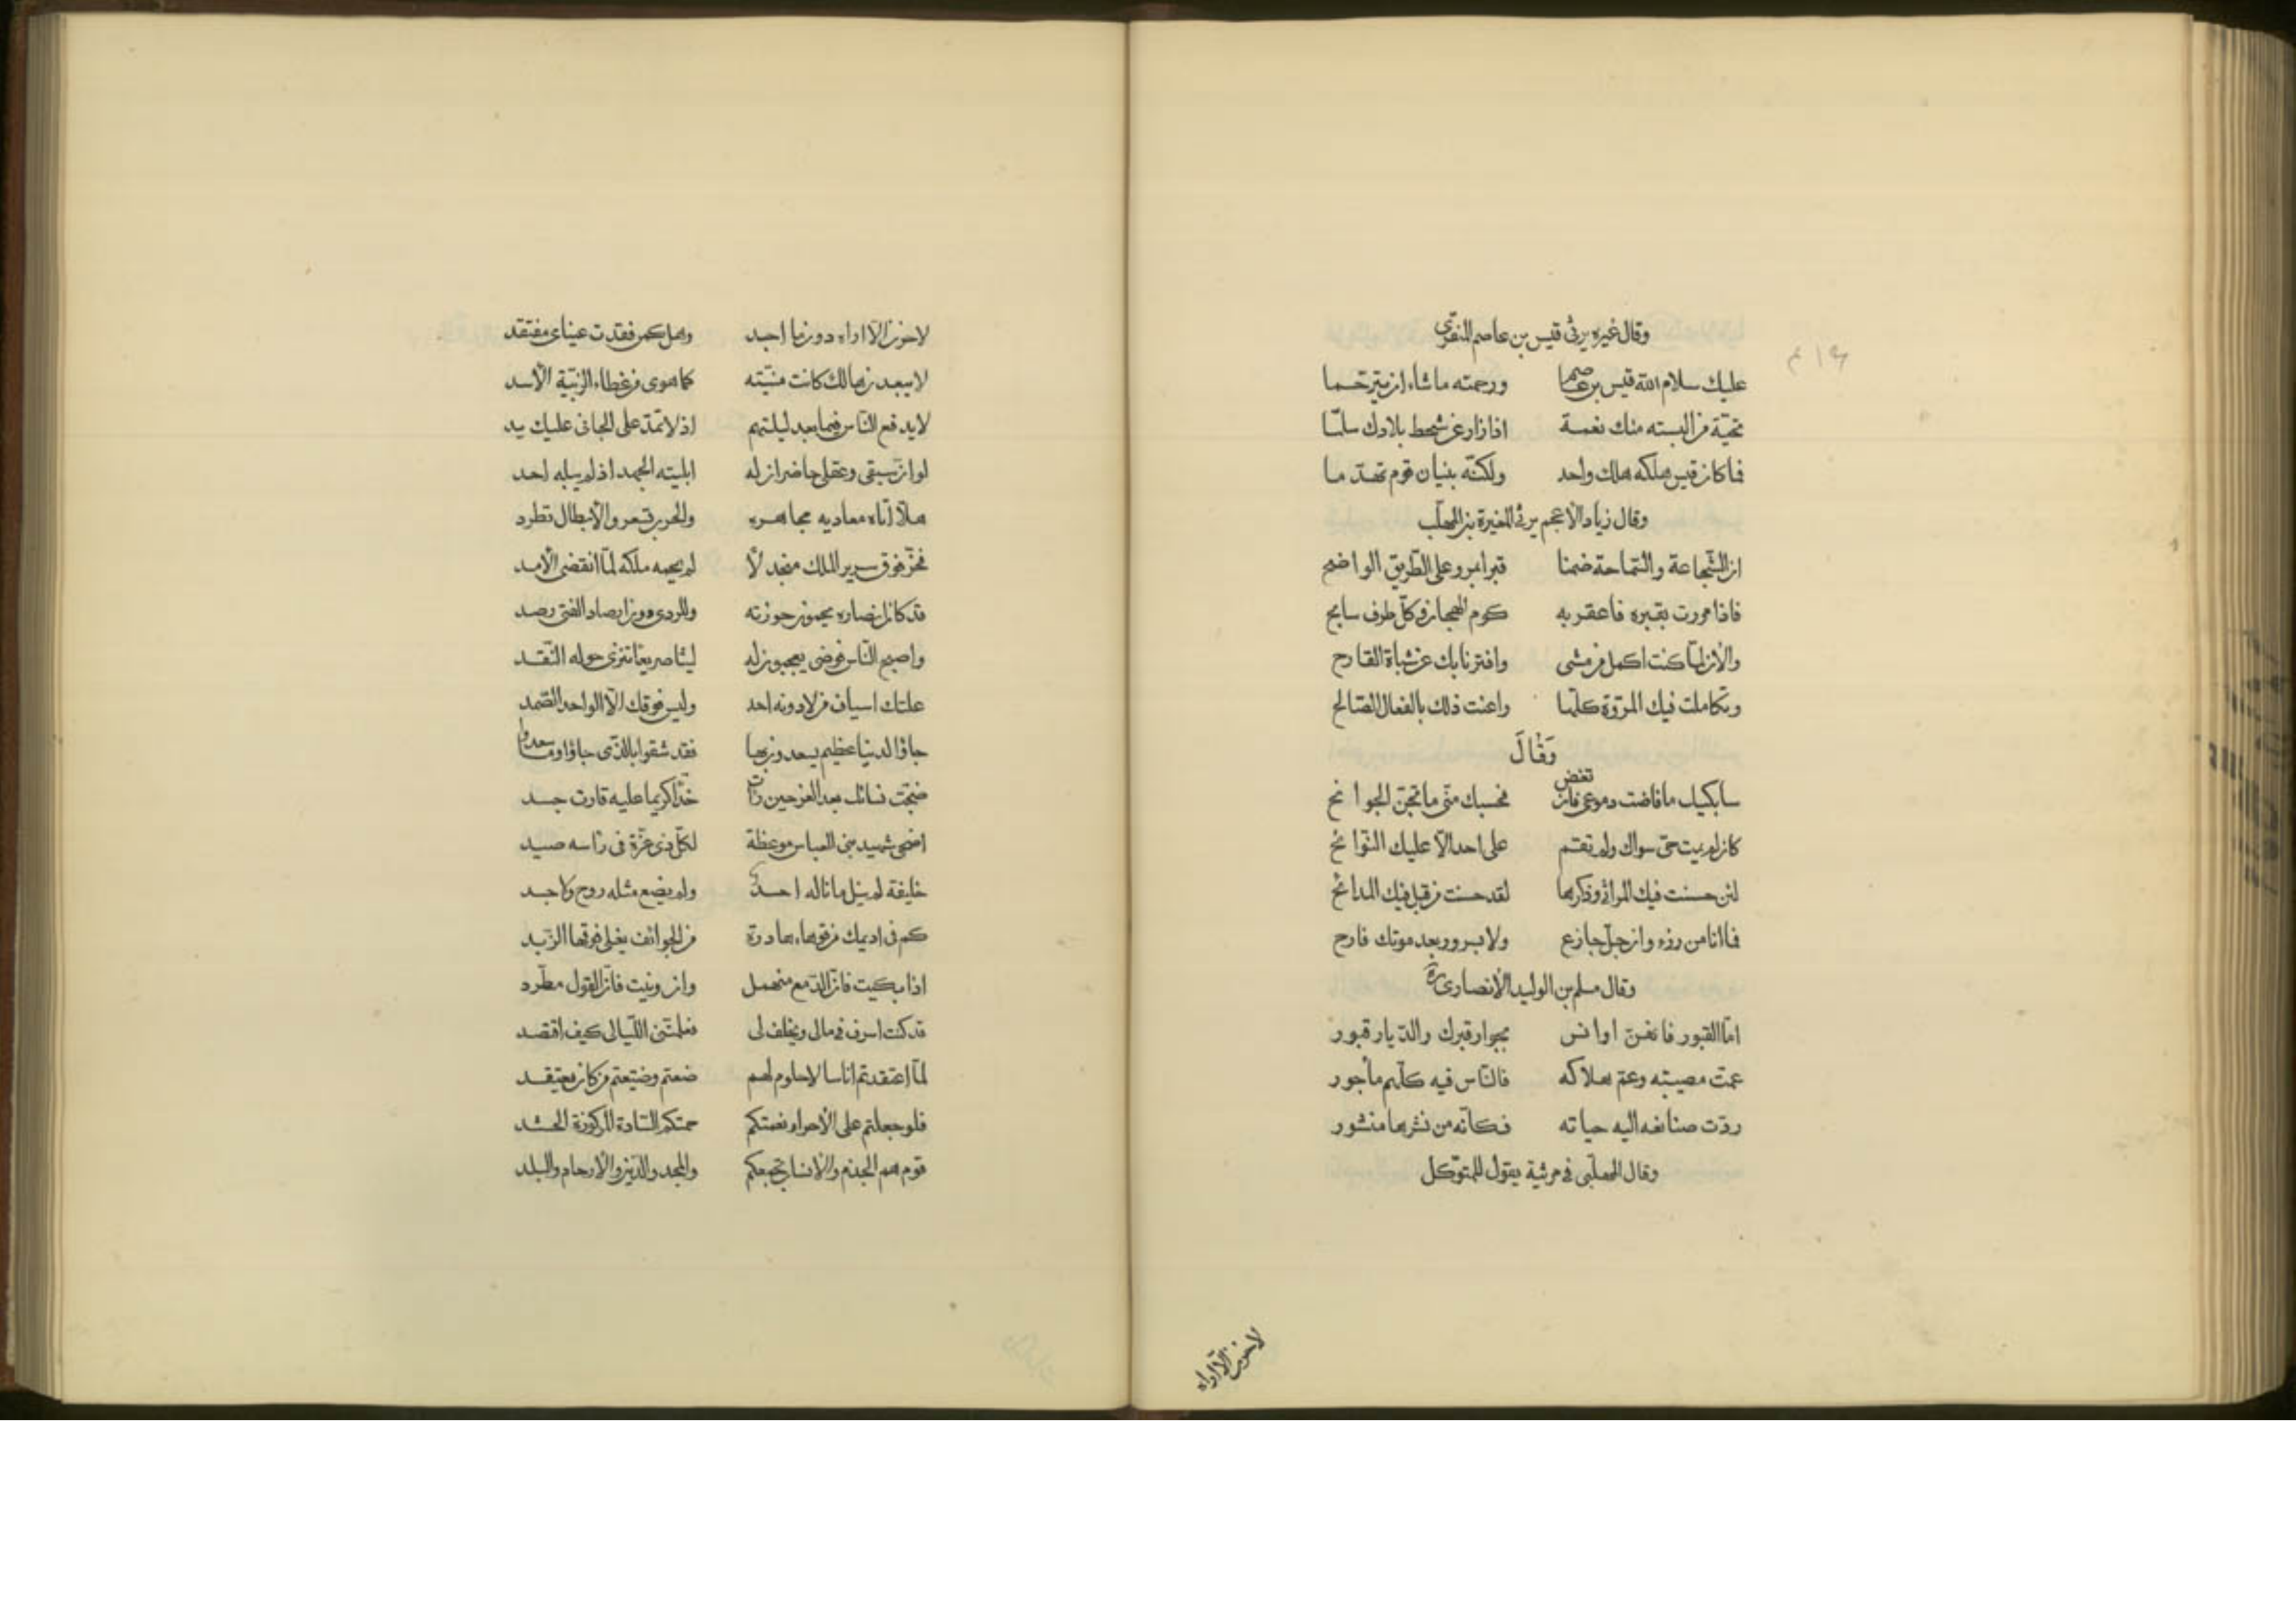 وقال غيره يرثى قيس بن عاصم المنقرى
عليك سلام الله قيس بن عاصم ورحمته ما شاء ان يترحما
تحية من البسته منك نعمة اذا زار عن شحط بلادك سلما
فما كان قيس هلكه هلك واحد ولكنه بنيان قوم تهدما
وقال زياد الأعجم يرثى المغيرة بن المهلب
ان الشجاعة والسماحة ضمنا قبرا بمرو على الطريق الواضح
فاذا مررت بقبره فاعقر به كوم الهجان وكل طرف سابح
والأن لما كنت اكمل من مشى وافتر نابك عن شباة القارح
وتكاملت فيك المروّة كلها واعنت ذلك بالفعال الصالح
وَقَالَ
سابكيك ما فاضت دموعى فان تغض فحسبك منّى ما تجنّ الجوانح
كان لم يمت حىّ سواك ولم تقم على احد الّا عليك النوائح
لئن حسنت فيك المراثى وذكرها لقد حسنت من قبل فيك المدائح
فما انا من رزء وان جلّ جازع ولا بسرور بعد موتك فارح
وقال مسلم بن الوليد الأنصارى
امّا القبور فانهنّ اوانس بجوار قبرك والديار قبور
عمت مصيبته وعم هلاكه فالناس فيه كلهم مأجور
ردّت صنائعه اليه حياته فكانّه من نشرها منشور
وقال المهلّبى فى مرثية يقول للمتوكل
لا حزن الّا اراه دون ما اجد وهل كمن فقدت عيناى مفتقد
لا يبعدن هالك كانت منيّته كما هوى من غطاء الزبية الأسد
لا يدفع الناس ضيما بعد ليلتهم اذ لا تمدّ على الجانى عليك يد
لو ان سيفى وعقلى حاضران له ابليته الجهد اذ لم يبله احد
هلّا اتاه معاديه مجاهره والحرب تسعر والأبطال تطرد
فخرّ فوق سرير الملك منجدلا لم يحمه ملكه لمّا انقضى الأمد
قد كان انصاره يحمون حوزته وللردى دون ارصاد الفتى رصد
واصبح الناس فوضى يعجبون له ليثا صريعا تنزى حوله النقد
علتك اسياف من لا دونه احد وليس فوقك الّا الواحد الصمد
جاؤا لدنيا عظيم يسعدون بها فقد شقوا بالذى جاؤا وما سعدوا
ضجّت نسائك بعد العز حين رات خدّا كريما عليه قارت جسد
اضحى شهيد بنى العباس موعظة لكل ذى عزّة فى رأسه صيد
خليفة لم ينل ما ناله احد ولم يضع مثله روح ولا جسد
كم فى اديمك من فوهاء هادرة من الجوائف يغلى فوقها الزبد
اذا بكيت فان الدمع منهمل وان رثيت فان القول مطّرد
قد كنت اسرف فى مالى ويخلف لى فعلمتنى الليالى كيف اقتصد
لمّا اعتقدتم اناسا لا حلوم لهم ضعتم وضيّعتم من كان يعتقد
فلو جعلتم على الأحرار نعمتكم حمتكم السادة المركوزة الحشد
قوم هم الجذم والأنساب تجمعكم والمجد والدين والأرحام والبلد
لا حزن الّا اراه